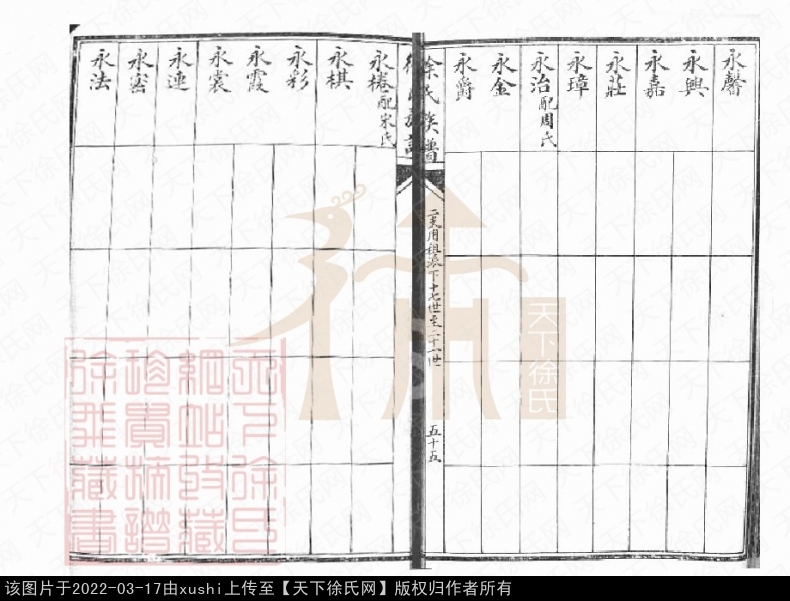 永馨
永興
永嘉
永莊
永璋
永治配周氏
永金
永爵
徐氏族譜
二支用祖派下十七世至二十一世
五十五
永棬配宋氏
永棋
永彩
永霞
永裳
永連
永密
永法
天下徐氏
天下徐氏
網站收藏
珍貴族譜
徐非藏書
该图片于2022-03-17由xushi上传至【天下徐氏网】版权归作者所有